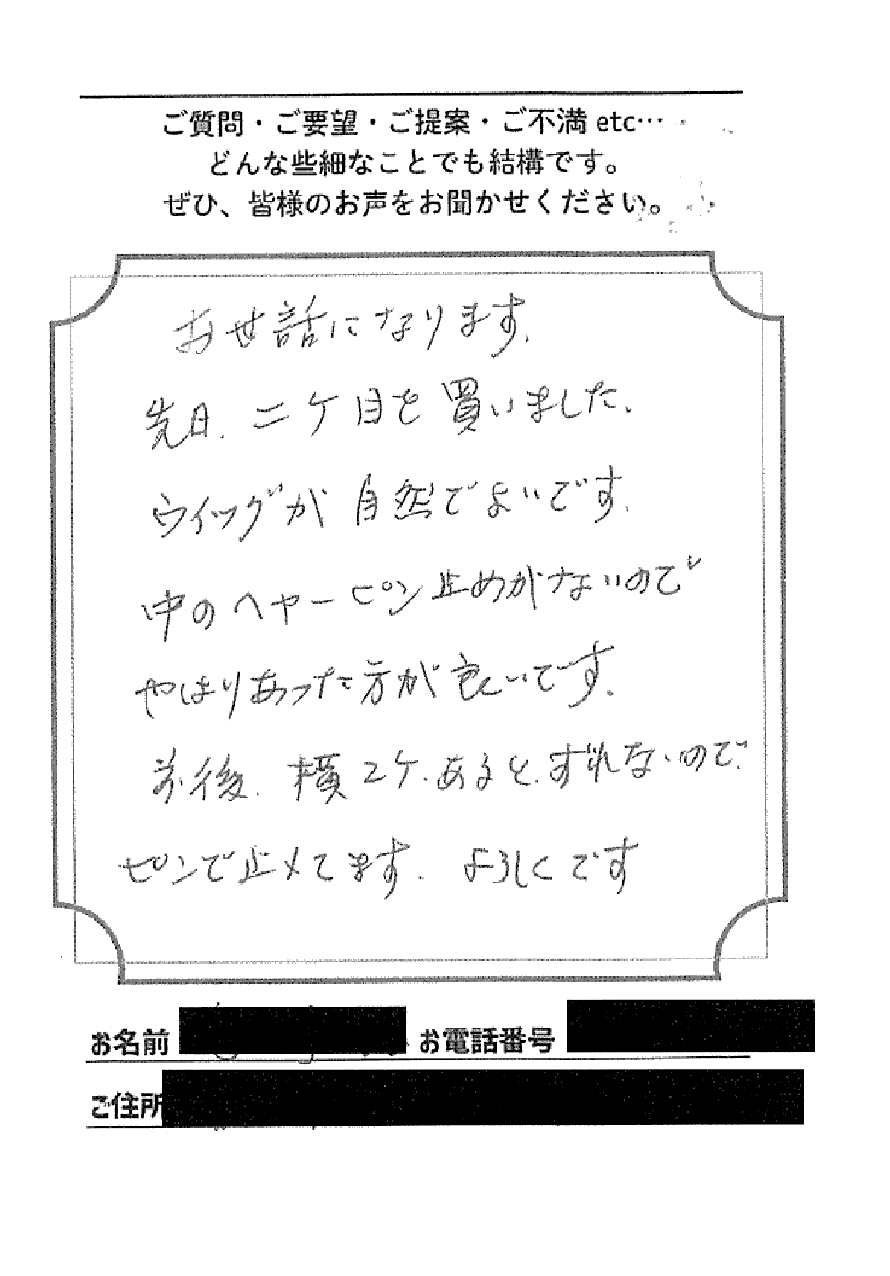 ご質問・ご要望・ご提案・ご不満 etc…
どんな些細なことでも結構です。
ぜひ、皆様のお声をお聞かせください。
お世話になります.
先日.二ケ目を買いました.
ウイッグが自然でよいです.
中のヘヤーピン止めがないので
やはりあった方が良いです.
前後.横2ケ.あると.ずれないので.
ピンで止メてます.よろしくです
お名前 お電話番号
ご住所